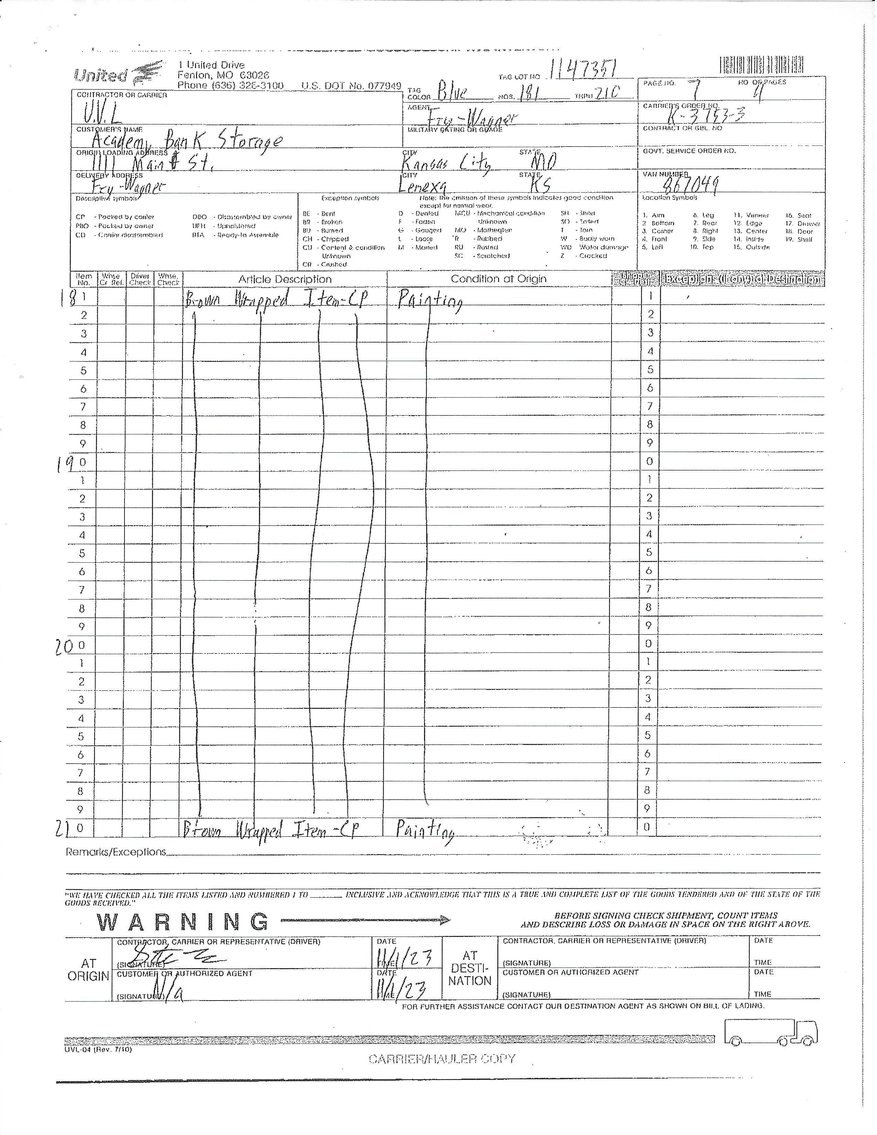 United
1 United Drive
Fenton, MO 63026
Phone (636) 326-3100 U.S. DOT No. 077949
TAG LOT NO. 1147351
TAG COLOR Blue NOS. 181 THRU 210
PAGE NO. 7 NO OF PAGES 9
CONTRACTOR OR CARRIER
U.V.L
AGENT
Fry-Wagner
CARRIER'S ORDER NO.
K-3753-3
CUSTOMER'S NAME
Academy Bank Storage
MILITARY RATING OR GRADE
CONTRACT OR GBL NO
ORIGIN LOADING ADDRESS
1111 Main St.
CITY
Kansas City
STATE
MO
GOVT. SERVICE ORDER NO.
DELIVERY ADDRESS
Fry-Wagner
CITY
Lenexa
STATE
KS
VAN NUMBER
867049
Descriptive symbols
CP - Packed by carrier
PBO - Packed by owner
CD - Carrier disassembled
DBO - Disassembled by owner
UPH - Upholstered
RTA - Ready-to-Assemble
Exception symbols
Note: the omission of these symbols indicates good condition except for normal wear.
BE - Bent
BR - Broken
BU - Burned
CH - Chipped
CU - Content & condition Unknown
CR - Crushed
D - Dented
F - Faded
G - Gouged
L - Loose
M - Marred
MCU - Mechanical condition Unknown
MO - Motheaten
R - Rubbed
RU - Rusted
SC - Scratched
SH - Short
SO - Soiled
T - Torn
W - Badly worn
WD - Water damage
Z - Cracked
Location Symbols
1. Arm
2. Bottom
3. Corner
4. Front
5. Left
6. Leg
7. Rear
8. Right
9. Side
10. Top
11. Veneer
12. Edge
13. Center
14. Inside
15. Outside
16. Seat
17. Drawer
18. Door
19. Shelf
Item No. Whse. Cr Rel. Driver Check Whse. Check Article Description Condition at Origin Exceptions (if any) at Destination
181 Brown Wrapped Item-CP Painting 1
2 2
3 3
4 4
5 5
6 6
7 7
8 8
9 9
190 0
1 1
2 2
3 3
4 4
5 5
6 6
7 7
8 8
9 9
200 0
1 1
2 2
3 3
4 4
5 5
6 6
7 7
8 8
9 9
210 Brown Wrapped Item-CP Painting 0
Remarks/Exceptions
"WE HAVE CHECKED ALL THE ITEMS LISTED AND NUMBERED 1 TO ______ INCLUSIVE AND ACKNOWLEDGE THAT THIS IS A TRUE AND COMPLETE LIST OF THE GOODS TENDERED AND OF THE STATE OF THE
GOODS RECEIVED."
WARNING
BEFORE SIGNING CHECK SHIPMENT, COUNT ITEMS
AND DESCRIBE LOSS OR DAMAGE IN SPACE ON THE RIGHT ABOVE.
AT ORIGIN
CONTRACTOR, CARRIER OR REPRESENTATIVE (DRIVER)
(SIGNATURE)
DATE
11/1/23
TIME
CUSTOMER OR AUTHORIZED AGENT
(SIGNATURE) N/a
DATE
11/1/23
AT DESTI-NATION
CONTRACTOR, CARRIER OR REPRESENTATIVE (DRIVER)
(SIGNATURE)
DATE
TIME
CUSTOMER OR AUTHORIZED AGENT
(SIGNATURE)
DATE
TIME
FOR FURTHER ASSISTANCE CONTACT OUR DESTINATION AGENT AS SHOWN ON BILL OF LADING.
UVL-04 (Rev. 7/10)
CARRIER/HAULER COPY